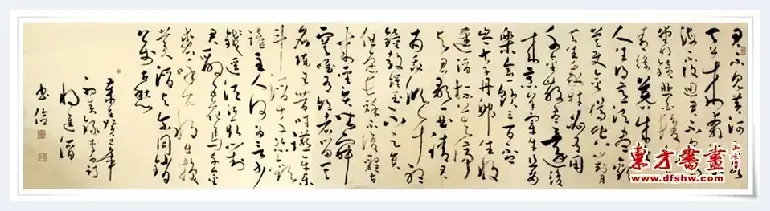 君不見黃河
天上来奔流到
海不復回君不見高
堂明鏡悲白髮朝如
青絲暮成雪
人生得意須盡歡
莫使金樽空對月
天生我材必有用
千金散盡還復
来烹羊宰牛且為
樂會須一飲三百杯
岑夫子丹邱生將
進酒杯莫停
與君歌一曲請君
鐘鼓饌玉不足貴
但願長醉不復醒古
来聖賢皆寂寞
惟有飲者留其
名陳王昔時宴平樂
斗酒十千恣歡
謔主人何為言少
錢徑須沽取對
君酌五花馬千金
裘呼兒將出換
美酒與爾同銷
萬古愁
癸巳年
初夏錄李白詩
將進酒
東方書畫
www.dfshw.com